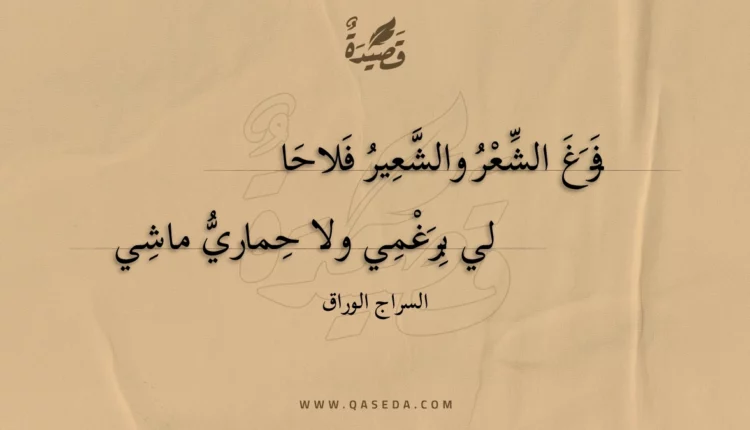 قَصِيْدَةٌ
فَرَغَ الشِّعْرُ والشَّعِيرُ فَلاحَا
لي بِرَغْمِي ولا حِماريُّ ماشِي
السراج الوراق
WWW.QASEDA.COM